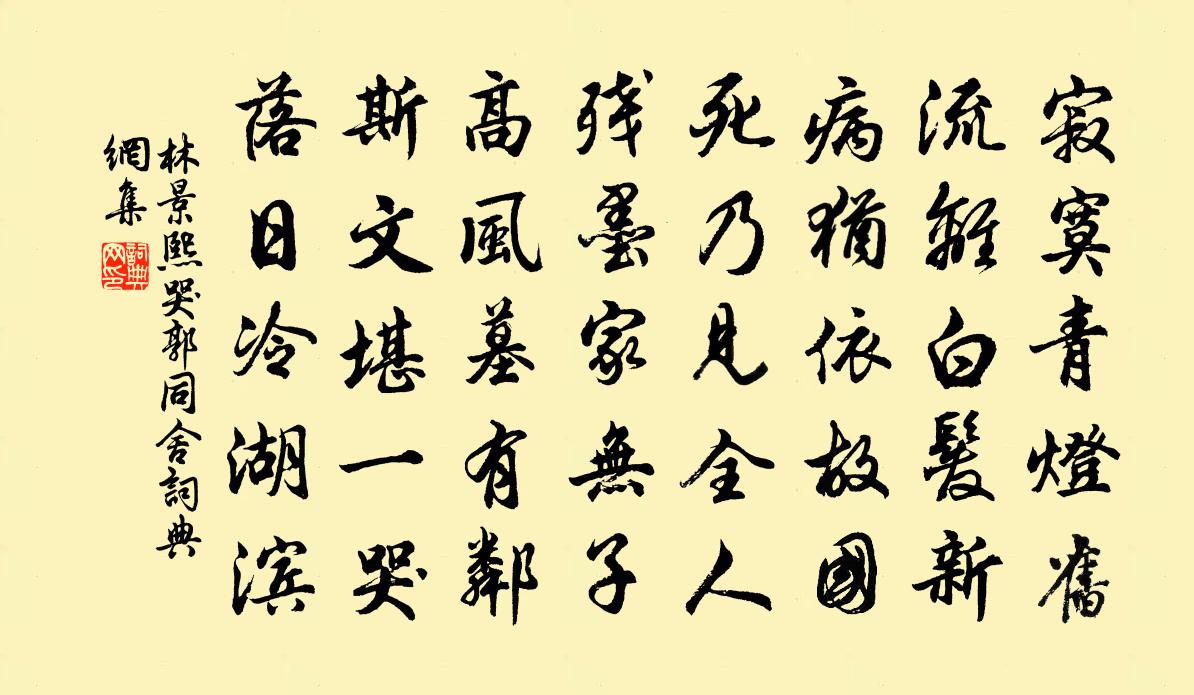 寂寞青燈舊
流離白髮新
病猶依故國
死乃見全人
残墨家無子
高風墓有鄰
斯文堪一哭
落日冷湖滨
林景熙哭郭同舍詞典
網集
詞典網印